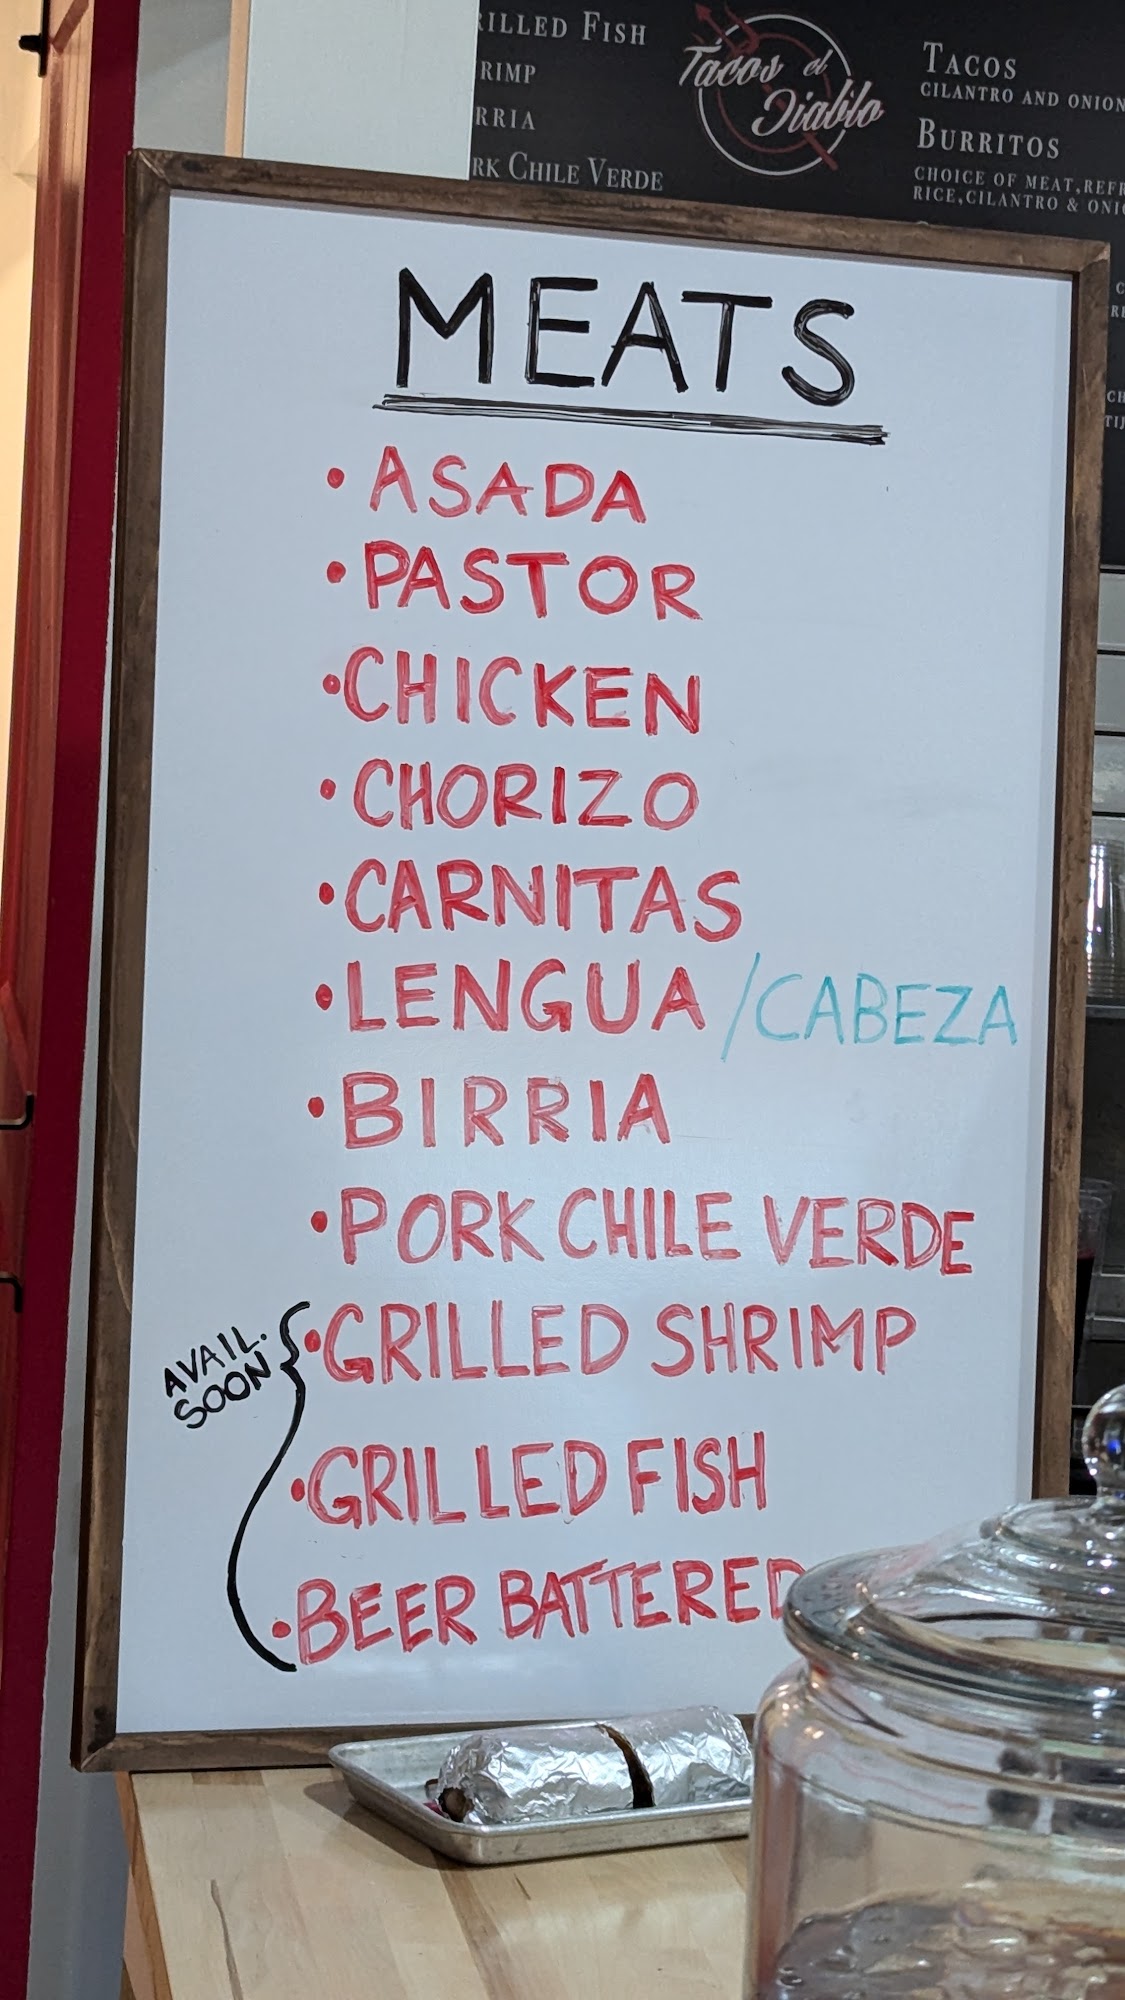 Fish
Chile Verde
Tacos el
Diablo
Tacos
CILANTRO AND ONION
Burritos
CHOICE OF MEAT,
RICE, CILANTRO &
MEATS
• ASADA
• PASTOR
• CHICKEN
• CHORIZO
• CARNITAS
• LENGUA /CABEZA
• BIRRIA
• PORK CHILE VERDE
AVAIL.
SOON
• GRILLED SHRIMP
• GRILLED FISH
• BEER BATTERED